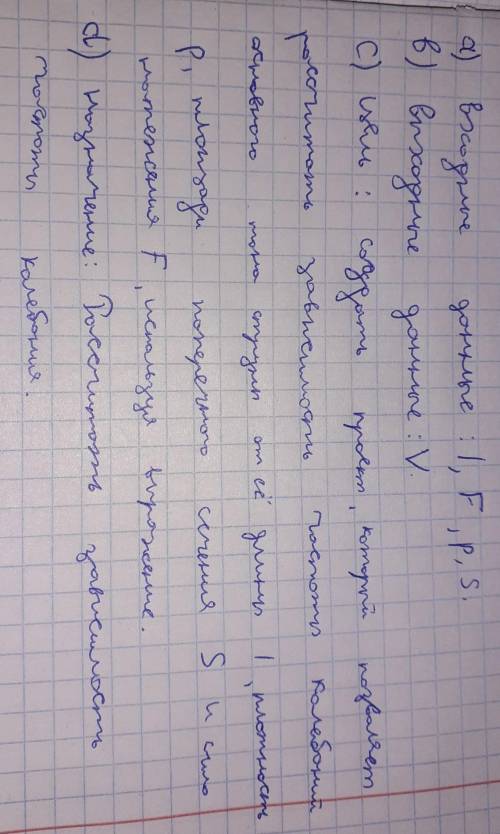 a) входные данные: l, F, p, S.
b) выходные данные: V.
c) Цель: создать проект, который позваляет
рассчитать зависимость частоты калебаний
основного тона струны от её длины l, плотность
p, площади поперечного сечения S и сило
натежения F, используя выражение.
d) Назначение: Рассчитать зависимость
частоты калебания.